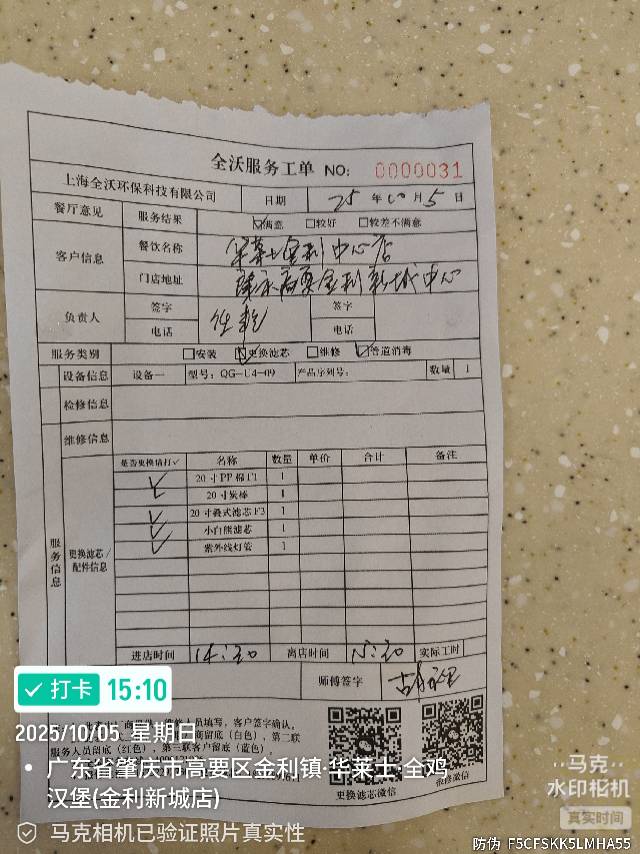 全沃服务工单 NO: 0000031
上海全沃环保科技有限公司 日期 25 年 10 月 5 日
餐厅意见 服务结果 ☑满意 □较好 □较差不满意
客户信息 餐饮名称 华莱士金利中心店
门店地址 肇庆高要金利新城中心
负责人 签字 签字
电话 电话
服务类别 □安装 ☑更换滤芯 □维修 ☑管道消毒
设备信息 设备一 型号: QG-U4-09 产品序列号: 数量 1
检修信息
维修信息
服务信息
更换滤芯/配件信息
是否更换请打✓ 名称 数量 单价 合计 备注
✓ 20寸PP棉T1 1
20寸炭棒 1
✓ 20寸袋式滤芯F3 1
✓ 小白熊滤芯 1
✓ 紫外线灯管 1
进店时间 14:30 离店时间 15:30 实际工时
师傅签字
填写，客户签字确认，
留底（白色），第二联
服务人员留底（红色），第三联客户留底（蓝色）。
更换滤芯微信
维修微信
打卡 15:10
2025/10/05 星期日
广东省肇庆市高要区金利镇·华莱士·全鸡
汉堡(金利新城店)
马克相机已验证照片真实性
马克
水印相机
真实时间
防伪 F5CFSKK5LMHA55